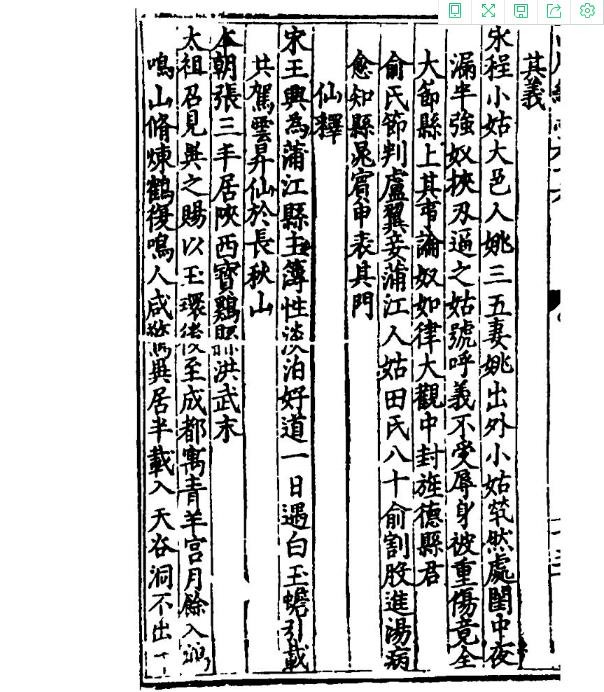 其義
宋程小姑大邑人姚三五妻姚出外小姑煢然處閨中夜
漏半強奴挾刃逼之姑號呼義不受辱身被重傷竟全
大節縣上其事論奴如律大觀中封旌德縣君
俞氏節判盧翼妾蒲江人姑田氏八十俞割股進湯病
愈知縣晁賓申表其門
仙釋
宋王興為蒲江縣主簿性淡泊好道一日遇白玉蟾引載
共駕雲昇仙於長秋山
本朝張三丰居陝西寶鷄縣洪武末
太祖召見與之賜以玉環後至成都寓青羊宮月餘入
鳴山脩煉鶴復鳴人咸驚異居半載入天谷洞不出